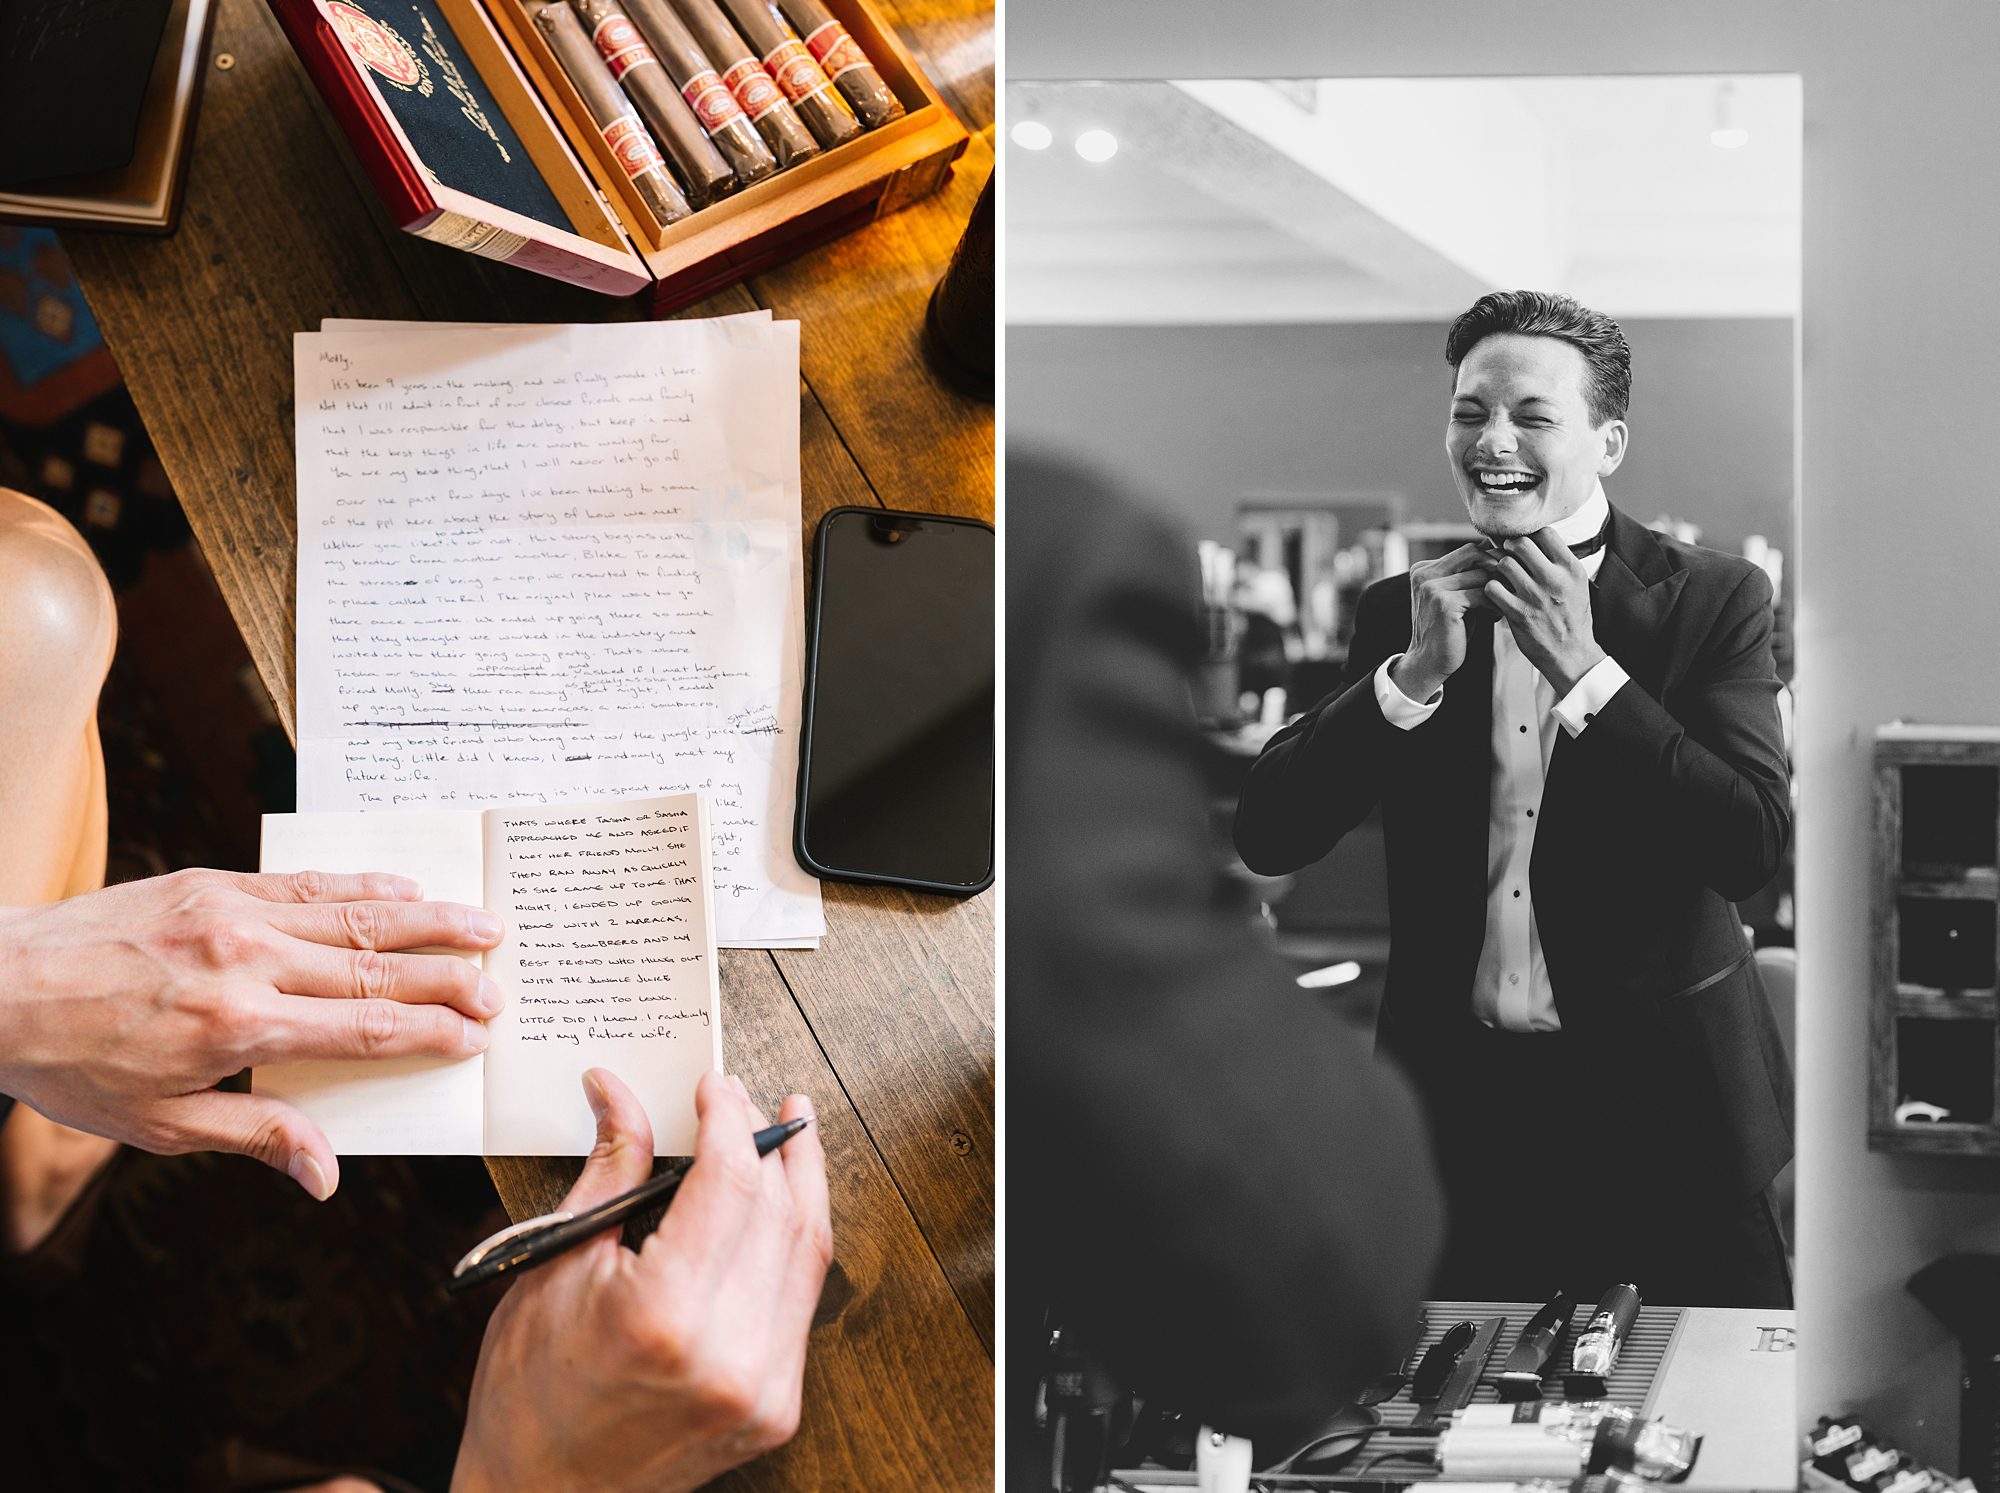 Molly,
It's been 9 years in the making, and we finally made it here.
Not that I'll admit in front of our closest friends and family
that I was responsible for the delay, but keep in mind
that the best things in life are worth waiting for.
You are my best thing, that I will never let go of.
Over the past few days I've been talking to some
of the ppl here about the story of how we met.
Whether you like it or not, this story begins with
to admit
my brother from another mother, Blake. To ease
the stress of being a cop, we resorted to finding
a place called The Rail. The original plan was to go
there once a week. We ended up going there so much
that they thought we worked in the industry, and
invited us to their going away party. That's where
approached and
Tasha or Sasha came up to me, asked if I met her
She as quickly as she came up to me.
friend Molly, then ran away. That night, I ended
up going home with two maracas, a mini sombrero,
and apparently my future wife.
station
way
and my best friend who hung out w/ the jungle juice a little
too long. Little did I know, I randomly met my
future wife.
The point of this story is "I've spent most of my
like.
make
ight,
of
or you.
THATS WHERE TASHA OR SASHA
APPROACHED ME AND ASKED IF
I MET HER FRIEND MOLLY. SHE
THEN RAN AWAY AS QUICKLY
AS SHE CAME UP TO ME. THAT
NIGHT, I ENDED UP GOING
HOME WITH 2 MARACAS,
A MINI SOMBRERO AND MY
BEST FRIEND WHO HUNG OUT
WITH THE JUNGLE JUICE
STATION WAY TOO LONG.
LITTLE DID I KNOW. I randomly
met my future wife.